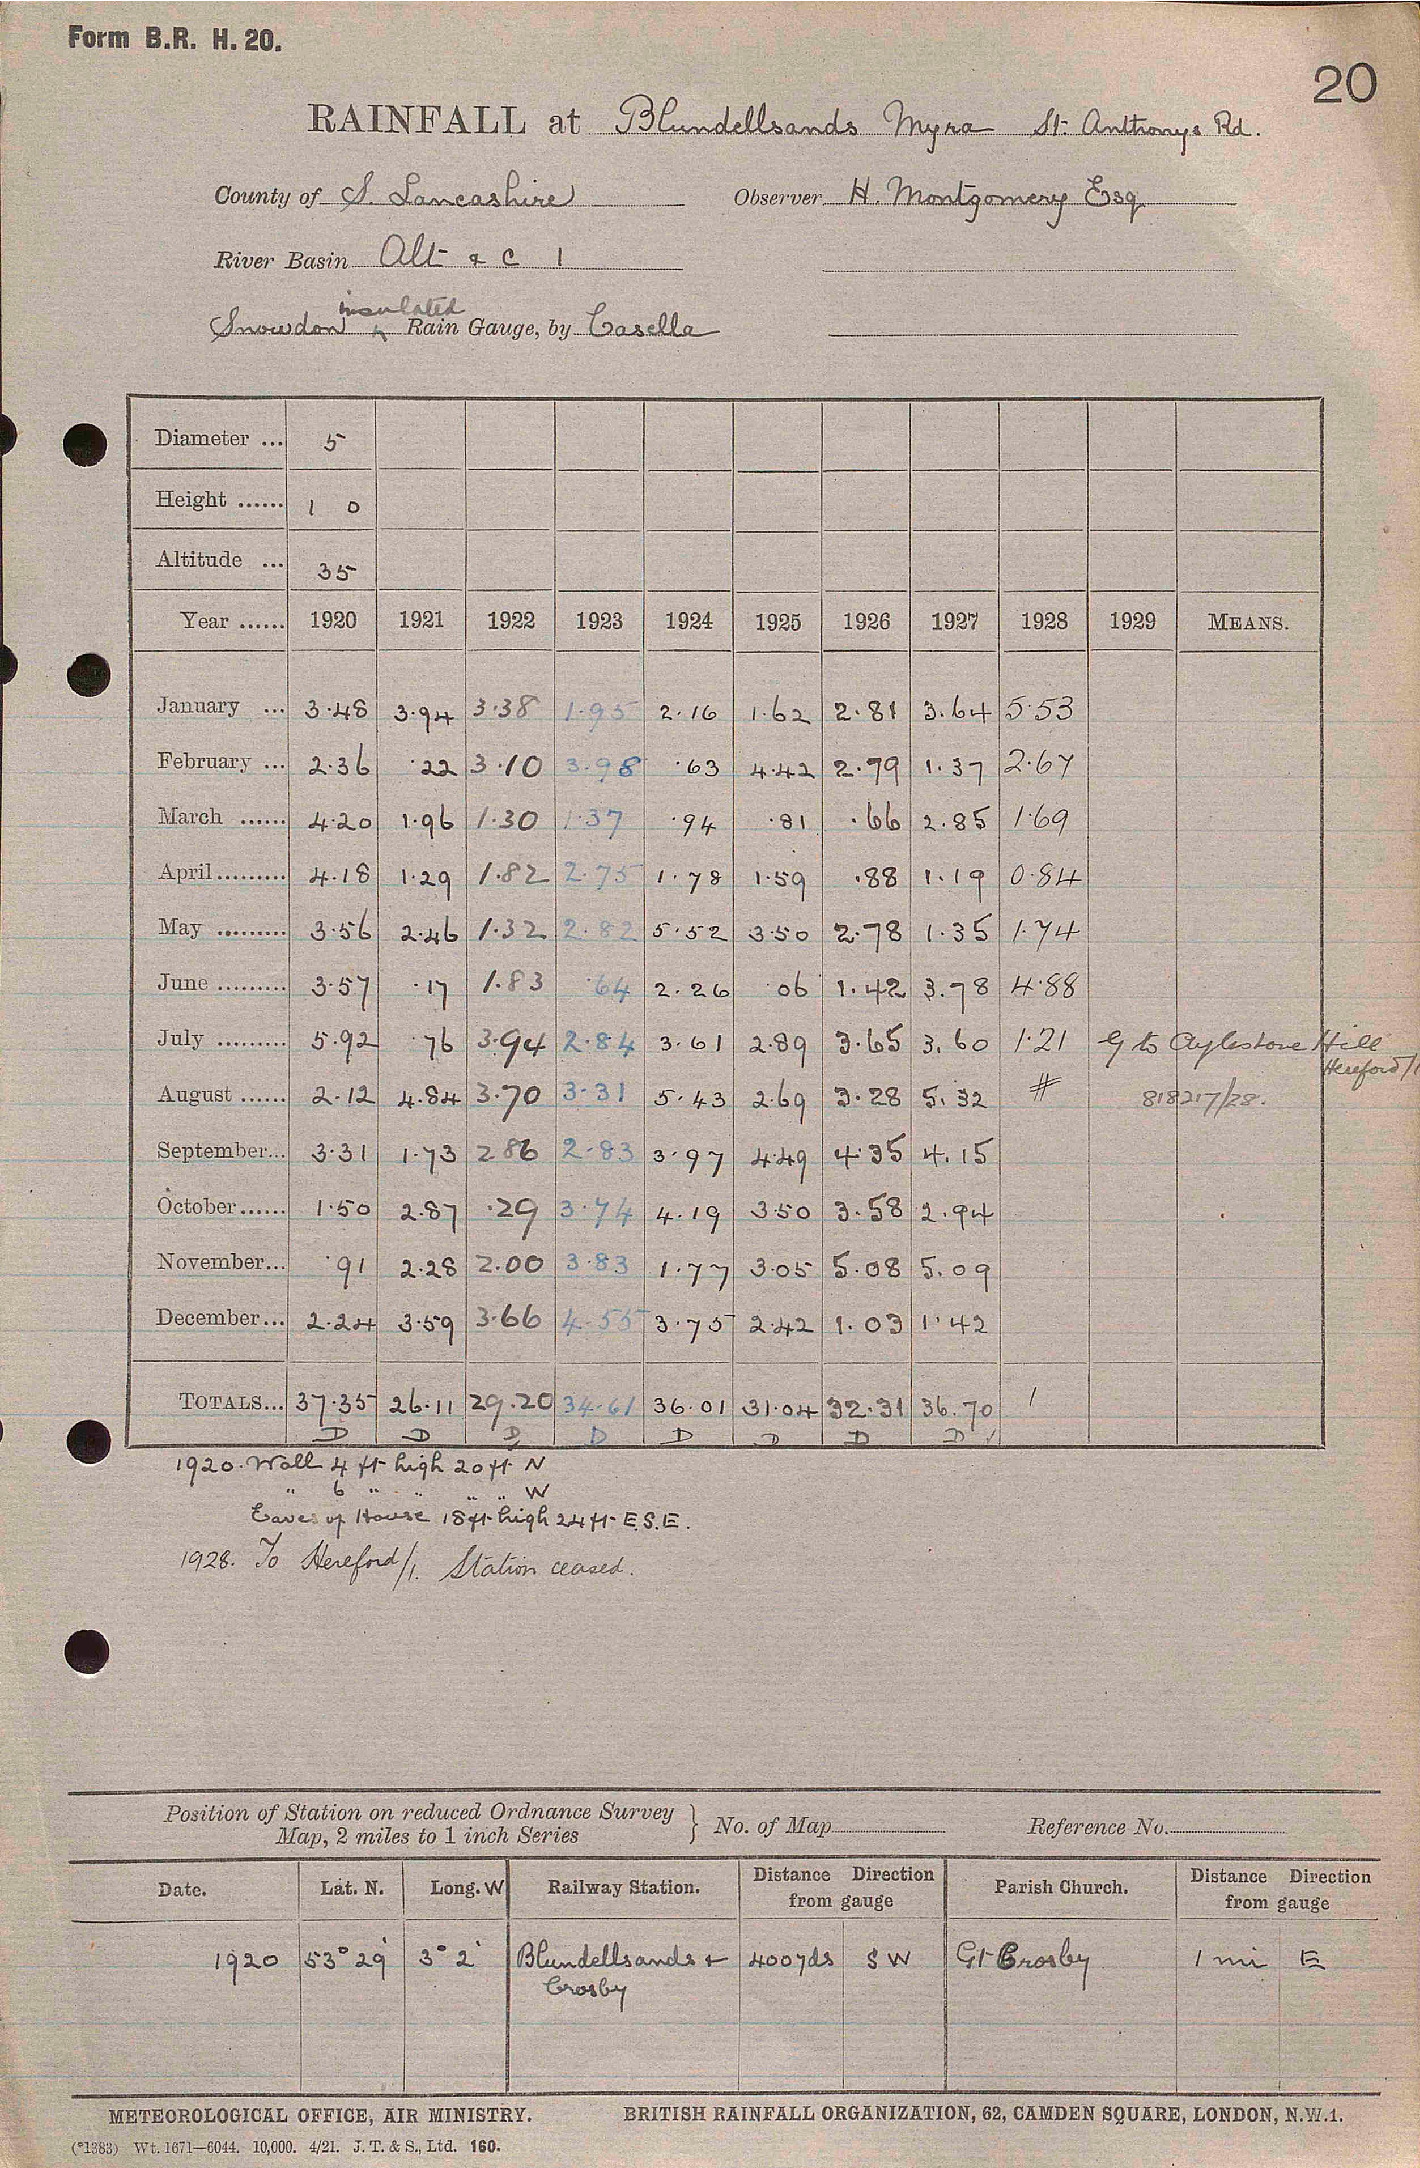 Form B.R. H. 20.
20
RAINFALL at Blundellsands Myra St. Anthonys Rd.
County of S. Lancashire Observer H. Montgomery Esq
River Basin Alt & C 1
insulated
Snowdon ^ Rain Gauge, by Casella
Diameter ... 5
Height ...... 1 0
Altitude ... 35
Year ...... 1920 1921 1922 1923 1924 1925 1926 1927 1928 1929 MEANS.
January ... 3.48 3.94 3.38 1.95 2.16 1.62 2.81 3.64 5.53
February ... 2.36 .22 3.10 3.98 .63 4.42 2.79 1.37 2.67
March ...... 4.20 1.96 1.30 1.37 .94 .81 .66 2.85 1.69
April ......... 4.18 1.29 1.82 2.75 1.78 1.59 .88 1.19 0.84
May ......... 3.56 2.46 1.32 2.82 5.52 3.50 2.78 1.35 1.74
June ......... 3.57 .17 1.83 .64 2.26 06 1.42 3.78 4.88
July ......... 5.92 76 3.94 2.84 3.61 2.89 3.65 3.60 1.21 G to Aylestone Hill
Hereford/1
August ...... 2.12 4.84 3.70 3.31 5.43 2.69 3.28 5.32 # 818217/28.
September... 3.31 1.73 2.86 2.83 3.97 4.49 4.35 4.15
October...... 1.50 2.87 .29 3.74 4.19 3.50 3.58 2.94
November... .91 2.28 2.00 3.83 1.77 3.05 5.08 5.09
December... 2.24 3.59 3.66 4.55 3.75 2.42 1.03 1.42
TOTALS... 37.35 26.11 29.20 34.61 36.01 31.04 32.31 36.70 1
D D D D D D D D /
1920. Wall 4 ft high 20 ft N
" 6 " " " " W
Eaves of House 18 ft high 24 ft E.S.E.
1928. To Hereford/1. Station ceased.
Position of Station on reduced Ordnance Survey
Map, 2 miles to 1 inch Series } No. of Map Reference No.
Date. Lat. N. Long. W Railway Station. Distance Direction from gauge Parish Church. Distance Direction from gauge
1920 53° 29' 3° 2' Blundellsands & 400 yds S W Gt Crosby 1 mi E
Crosby
METEOROLOGICAL OFFICE, AIR MINISTRY. BRITISH RAINFALL ORGANIZATION, 62, CAMDEN SQUARE, LONDON, N.W.1.
(*1383) Wt. 1671—6044. 10,000. 4/21. J. T. & S., Ltd. 160.